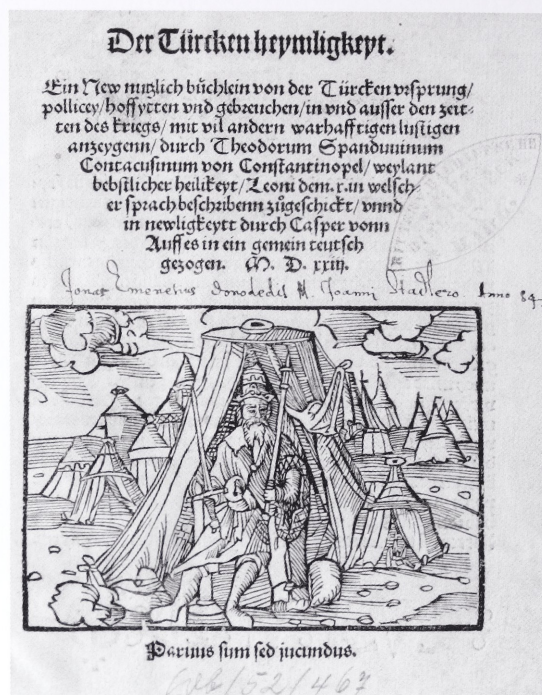 Der Türcken heymligkeyt.
Ein New nutzlich büchlein von der Türcken vrsprung/
pollicey/hoffsytten vnd gebreuchen/in vnd ausser den zeit-
ten des kriegs/mit vil andern warhafftigen lustigen
anzeygenn/durch Theodorum Spanduuinum
Contacusinum von Constantinopel/weylant
bebstlicher heilikeyt/Leoni dem .x. in welsch
er sprach beschribenn zůgeschickt/vnnd
in newligkeytt durch Casper vonn
Auffses in ein gemein teutsch
gezogen. M. D. xxiij.
Jonas donodedit M. Joanni Stadlero. Anno 84
Paruus sum sed jucundus.
52/467